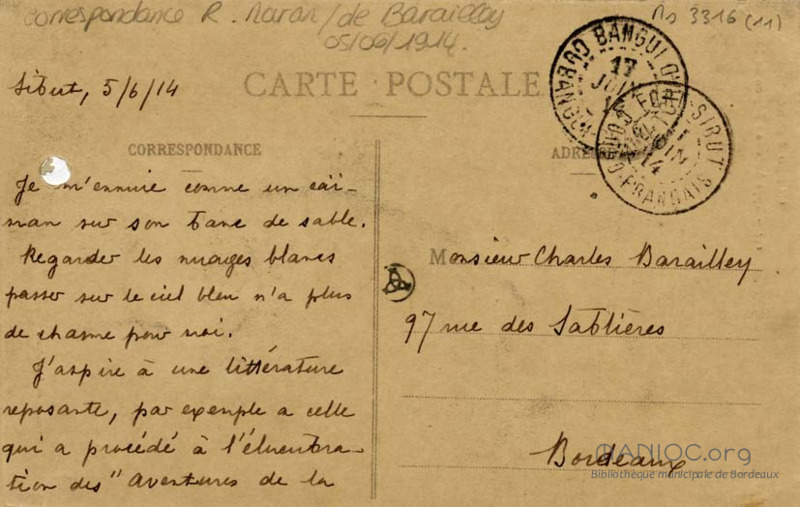 Correspondance R. Maran/de Barailley
05/06/1914.
Ms 3316 (11)
Sibut, 5/6/14
CARTE POSTALE
BANGUI
17
JUIN
FORT-SIBUT
14
CONGO-FRANCAIS
CORRESPONDANCE
Je m'ennuie comme un caï-
man sur son banc de sable.
Regarder les nuages blancs
passer sur le ciel bleu n'a plus
de charme pour moi.
J'aspire à une littérature
reposante, par exemple a celle
qui a procédé à l'élucubra-
tion des "Aventures de la
Monsieur Charles Barailley
97 rue des Sablières
Bordeaux
MANIOC.org
Bibliothèque municipale de Bordeaux